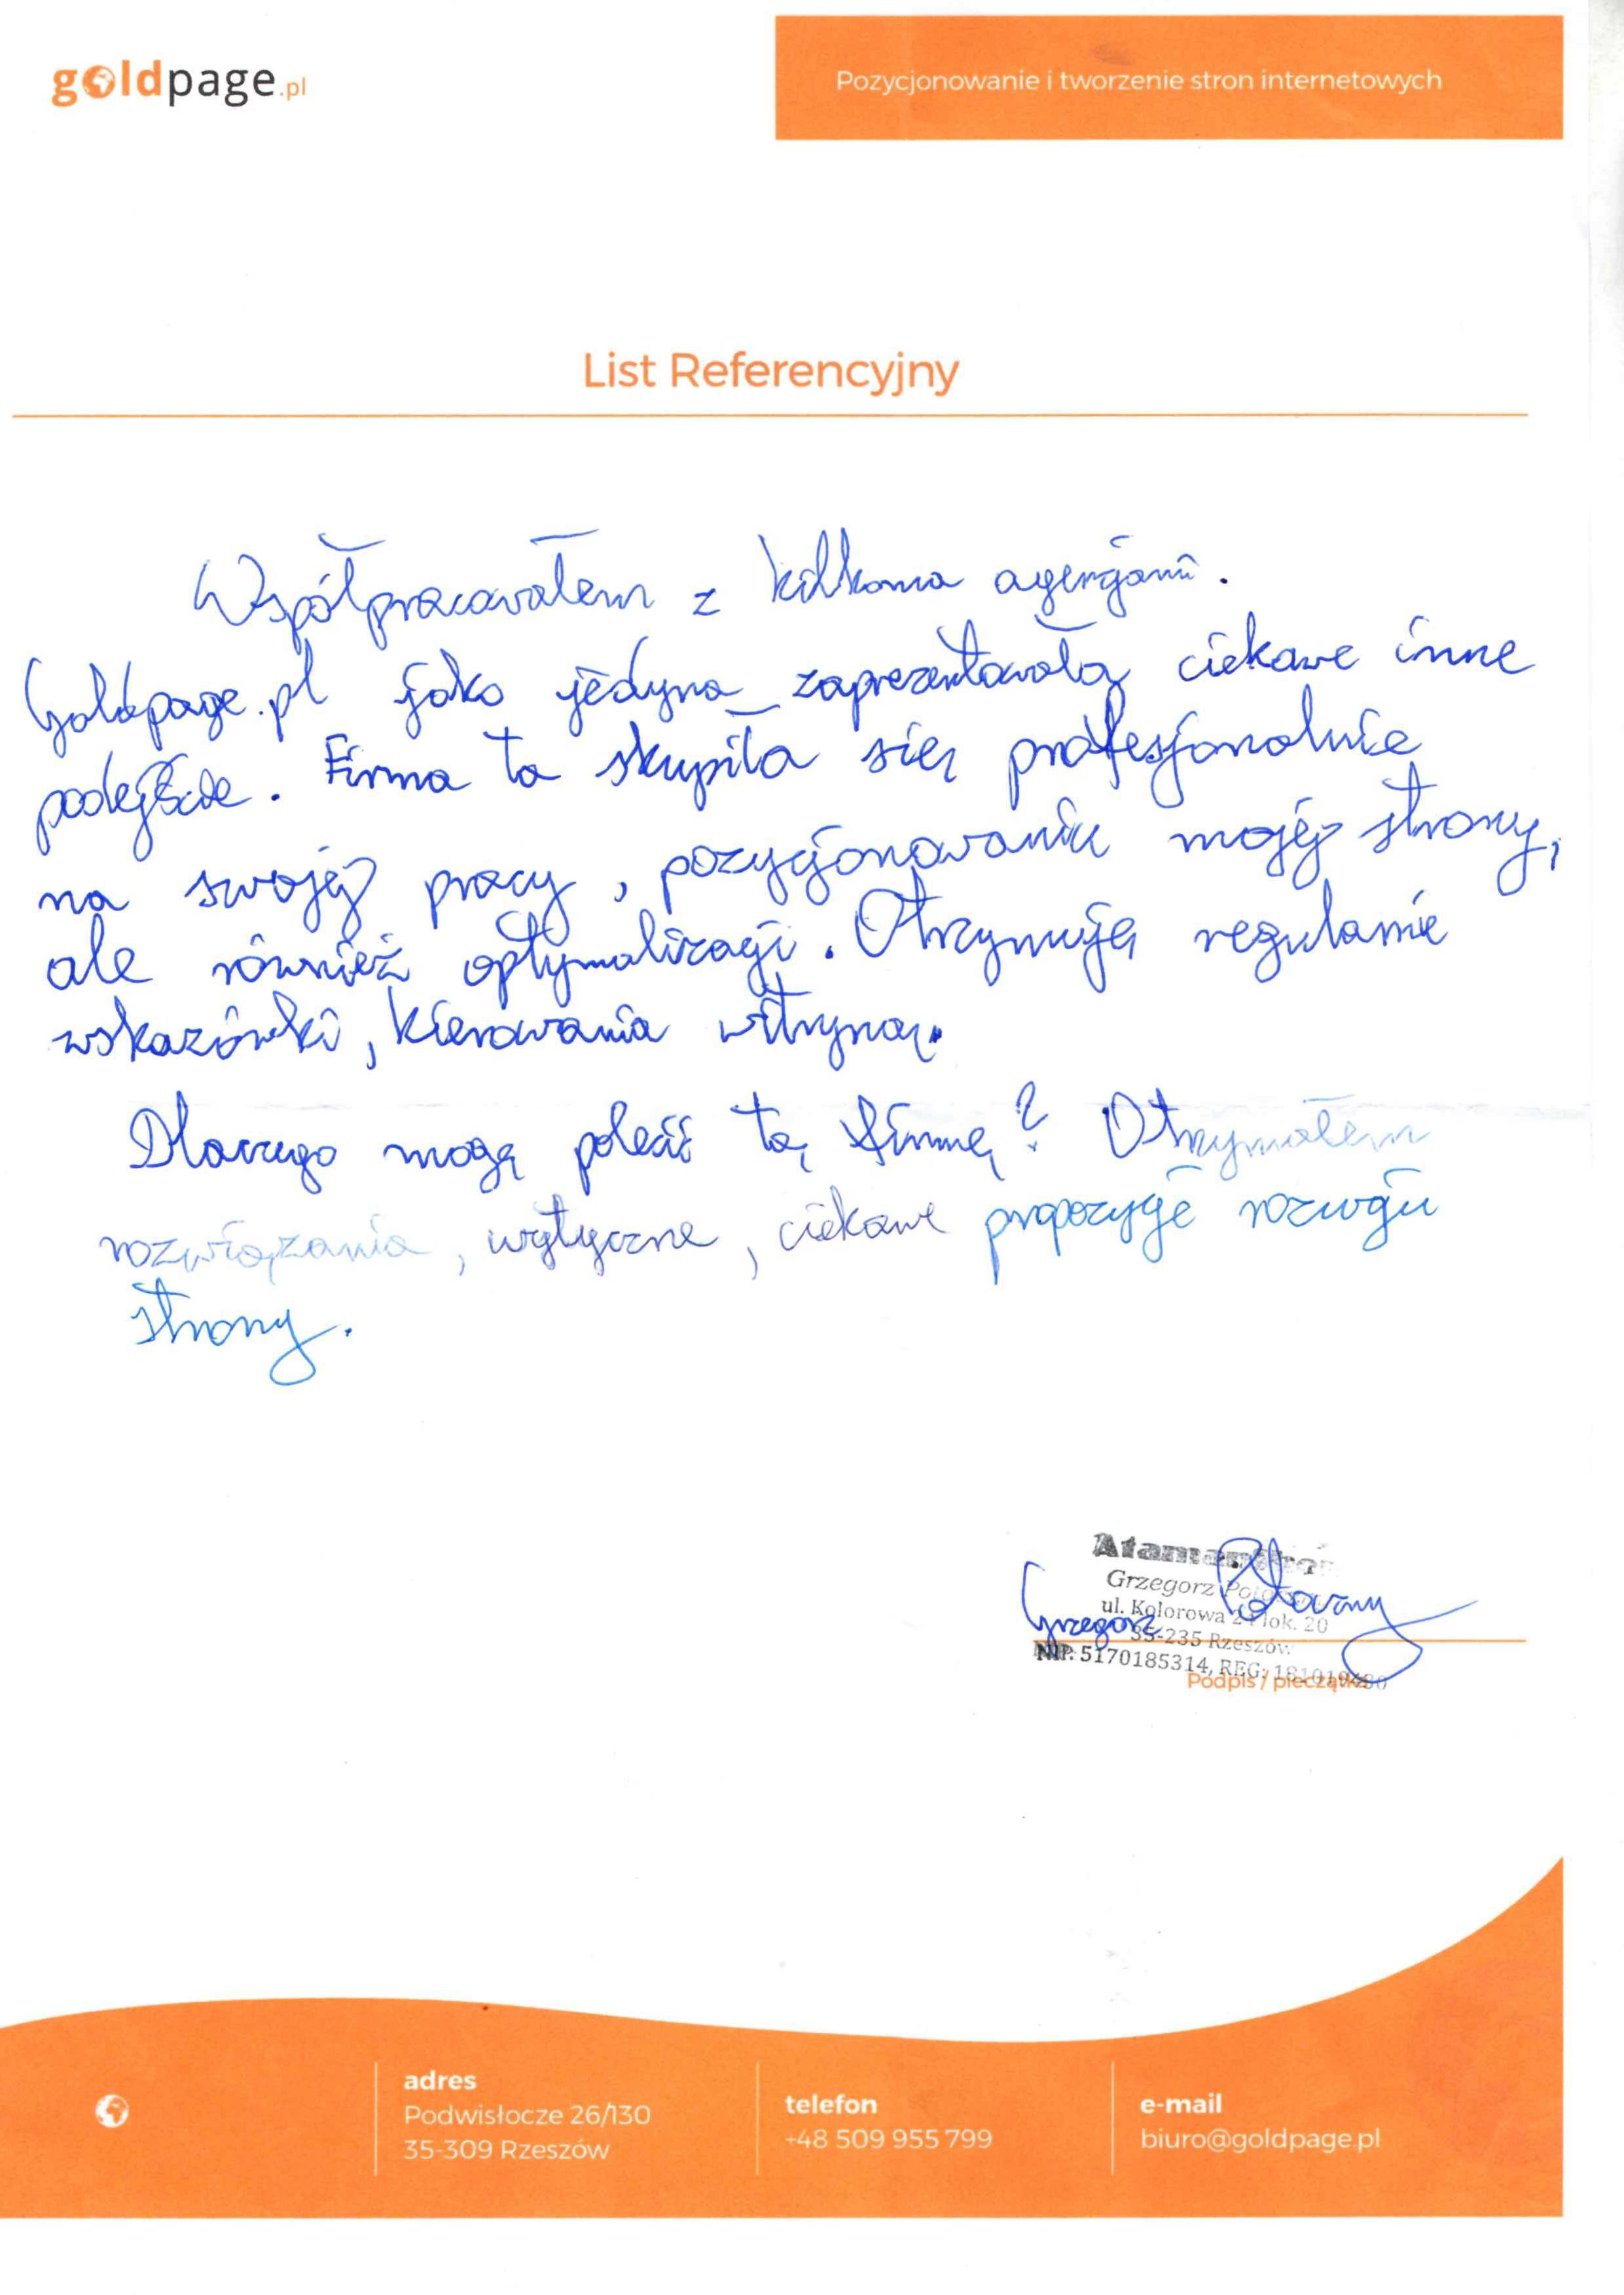 goldpage.pl
Pozycjonowanie i tworzenie stron internetowych
List Referencyjny
Współpracowałem z kilkoma agencjami.
Goldpage.pl jako jedyna zaprezentowała ciekawe inne
podejście. Firma ta skupiła się profesjonalnie
na swojej pracy, pozycjonowaniu mojej strony,
ale również optymalizacji. Otrzymuję regularnie
wskazówki, kierowania witryną.
Dlaczego mogę polecić tę firmę? Otrzymałem
rozwiązania, wytyczne, ciekawe propozycje rozwoju
strony.
Grzegorz
ul. Kolorowa lok. 20
Grzegorz
35-235 Rzeszów
NIP: 5170185314, REG:
Podpis / pieczątka
adres
Podwisłocze 26/130
35-309 Rzeszów
telefon
+48 509 955 799
e-mail
biuro@goldpage.pl